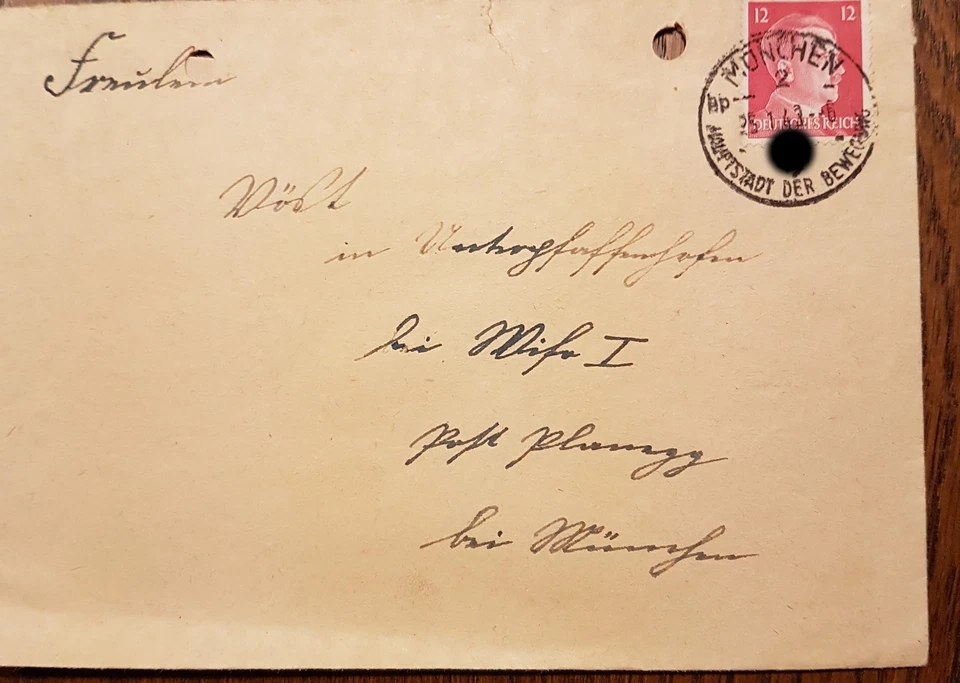 12 12
DEUTSCHES REICH
MÜNCHEN
2
HAUPTSTADT DER BEWEGUNG
Freulein
Vöst
in Unterpfaffenhofen
bei Wifo I
Post Planegg
bei München